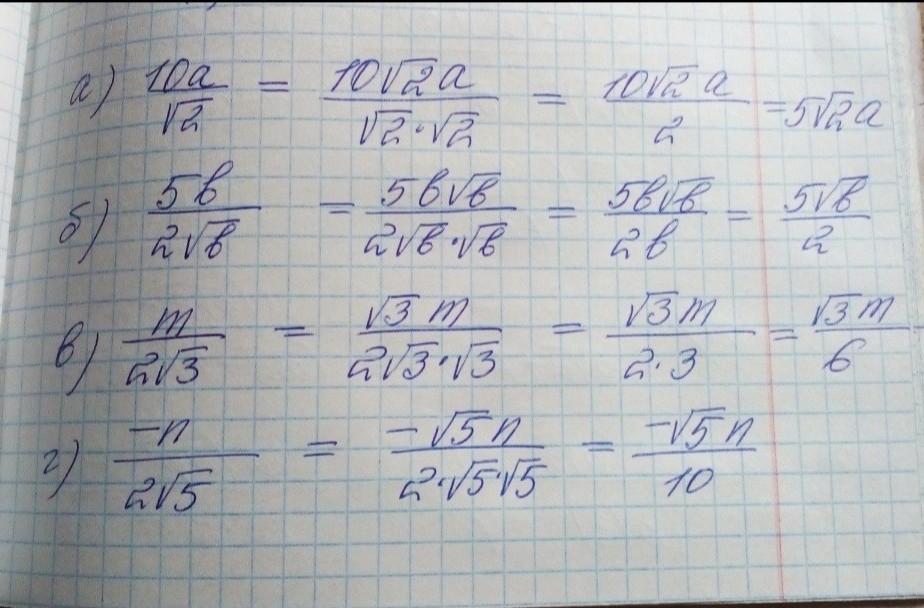 а) 10a/√2 = 10√2a/√2·√2 = 10√2a/2 = 5√2a
б) 5b/2√b = 5b√b/2√b·√b = 5b√b/2b = 5√b/2
в) m/2√3 = √3m/2√3·√3 = √3m/2·3 = √3m/6
г) -n/2√5 = -√5n/2·√5·√5 = -√5n/10